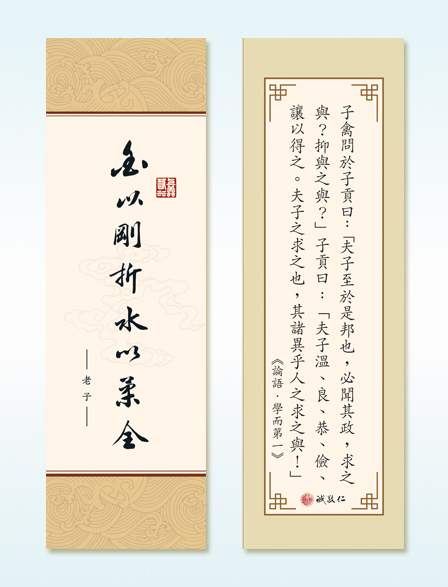 金以剛折水以柔全
老子
子禽問於子貢曰：「夫子至於是邦也，必聞其政，求之
與？抑與之與？」子貢曰：「夫子溫、良、恭、儉、
讓以得之。夫子之求之也，其諸異乎人之求之與！」
《論語．學而第一》
誠敬仁